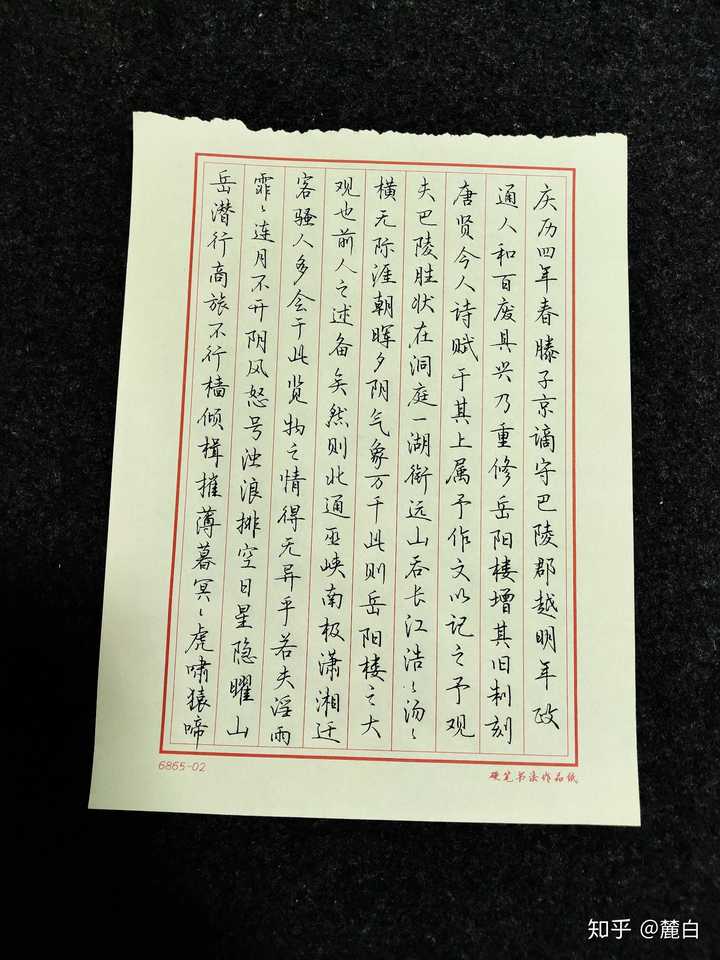 庆历四年春滕子京谪守巴陵郡越明年政
通人和百废具兴乃重修岳阳楼增其旧制刻
唐贤今人诗赋于其上属予作文以记之予观
夫巴陵胜状在洞庭一湖衔远山吞长江浩〻汤〻
横无际涯朝晖夕阴气象万千此则岳阳楼之大
观也前人之述备矣然则北通巫峡南极潇湘迁
客骚人多会于此览物之情得无异乎若夫淫雨
霏〻连月不开阴风怒号浊浪排空日星隐曜山
岳潜行商旅不行樯倾楫摧薄暮冥〻虎啸猿啼
6865-02
硬笔书法作品纸
知乎 @麓白